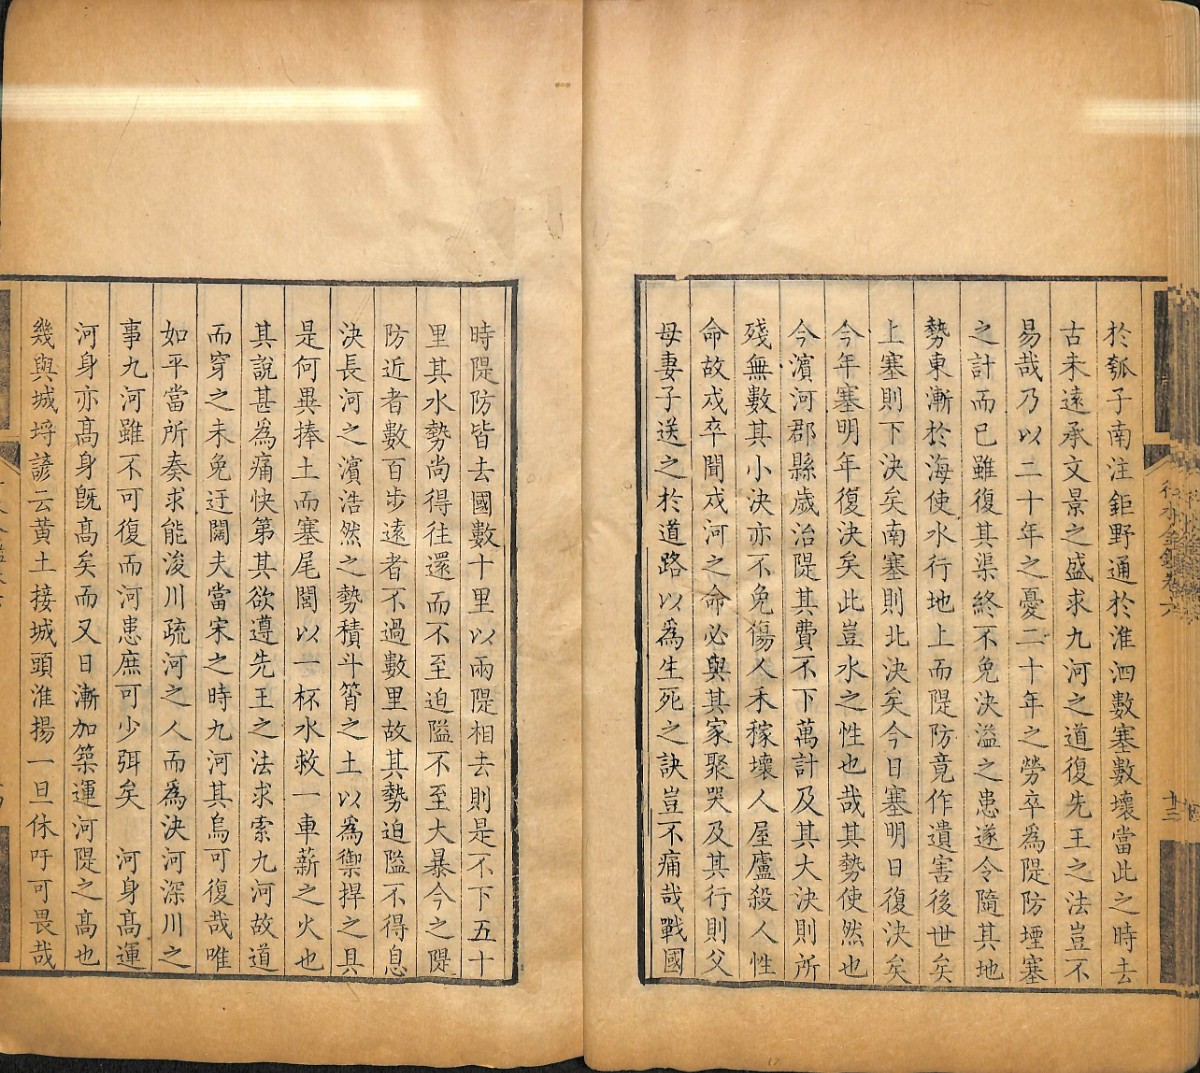 於瓠子南注鉅野通於淮泗數塞數壞當此之時去
古未遠承文景之盛求九河之道復先王之法豈不
易哉乃以二十年之憂二十年之勞卒為隄防堙塞
之計而已雖復其渠終不免決溢之患遂令隨其地
勢東漸於海使水行地上而隄防竟作遺害後世矣
上塞則下決矣南塞則北決矣今日塞明日復決矣
今年塞明年復決矣此豈水之性也哉其勢使然也
今濱河郡縣歲治隄其費不下萬計及其大決則所
殘無數其小決亦不免傷人禾稼壞人屋廬殺人性
命故戍卒聞戍河之命必與其家聚哭及其行則父
母妻子送之於道路以為生死之訣豈不痛哉戰國
行水金鑑卷六
十三
時隄防皆去國數十里以兩隄相去則是不下五十
里其水勢尚得往還而不至迫隘不至大暴今之隄
防近者數百步遠者不過數里故其勢迫隘不得息
決長河之濱浩然之勢積斗筲之土以為禦捍之具
是何異捧土而塞尾閭以一杯水救一車薪之火也
其說甚為痛快第其欲遵先王之法求索九河故道
而穿之未免迂闊夫當宋之時九河其烏可復哉唯
如平當所奏求能浚川疏河之人而為決河深川之
事九河雖不可復而河患庶可少弭矣　河身高運
河身亦高身旣高矣而又日漸加築運河隄之高也
幾與城埒諺云黃土接城頭淮揚一旦休吁可畏哉